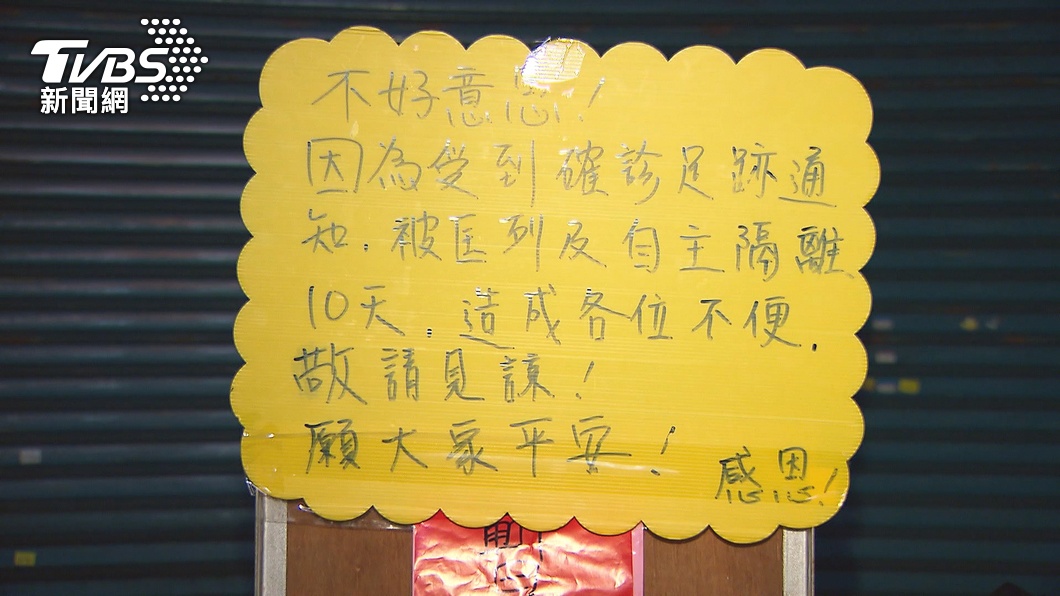 TVBS
新聞網
不好意思!
因為受到確診足跡通
知.被匡列及自主隔離
10天.造成各位不便.
敬請見諒!
願大家平安!
感恩!